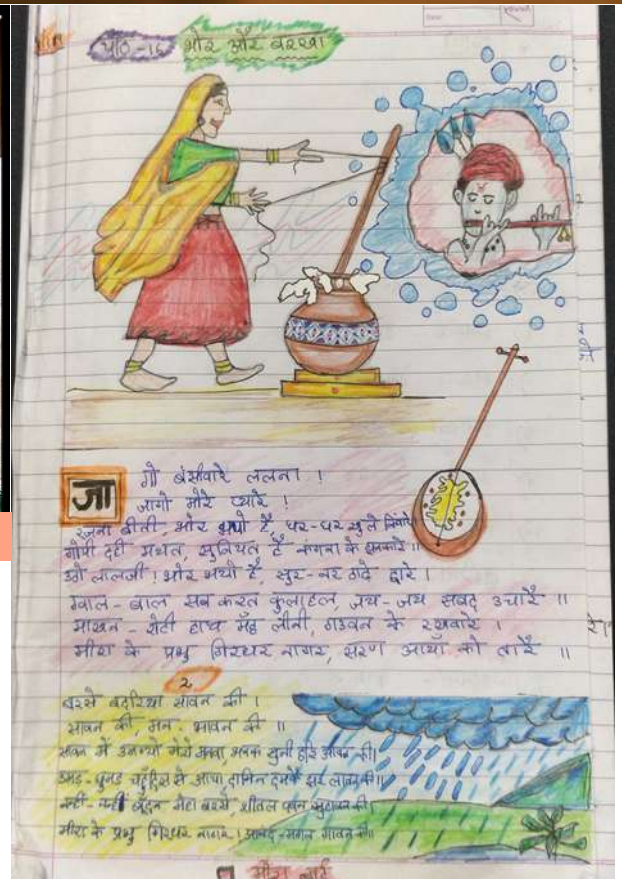 पाठ-16 भोर और बरखा
जा
गो बंसीवारे ललना !
जागो मोरे प्यारे !
रजनी बीती, भोर भयो है, घर-घर खुले किंवारे।
गोपी दही मथत, सुनियत है कंगना के झनकारे ॥
उठो लालजी ! भोर भयो है, सुर-नर ठाढ़े द्वारे ।
ग्वाल-बाल सब करत कुलाहल, जय-जय सबद उचारै ॥
माखन-रोटी हाथ मँह लीनी, गउवन के रखवारे ।
मीरा के प्रभु गिरधर नागर, सरण आयाँ को तारै ॥
2
बरसे बदरिया सावन की ।
सावन की, मन-भावन की ॥
सावन में उमग्यो मेरो मनवा, भनक सुनी हरि आवन की।
उमड़-घुमड़ चहुँदिस से आया, दामिन दमकै झर लावन की॥
नन्हीं-नन्हीं बूँदन मेहा बरसे, शीतल पवन सुहावन की।
मीरा के प्रभु गिरधर नागर ! आनंद-मंगल गावन की॥
मीरा बाई